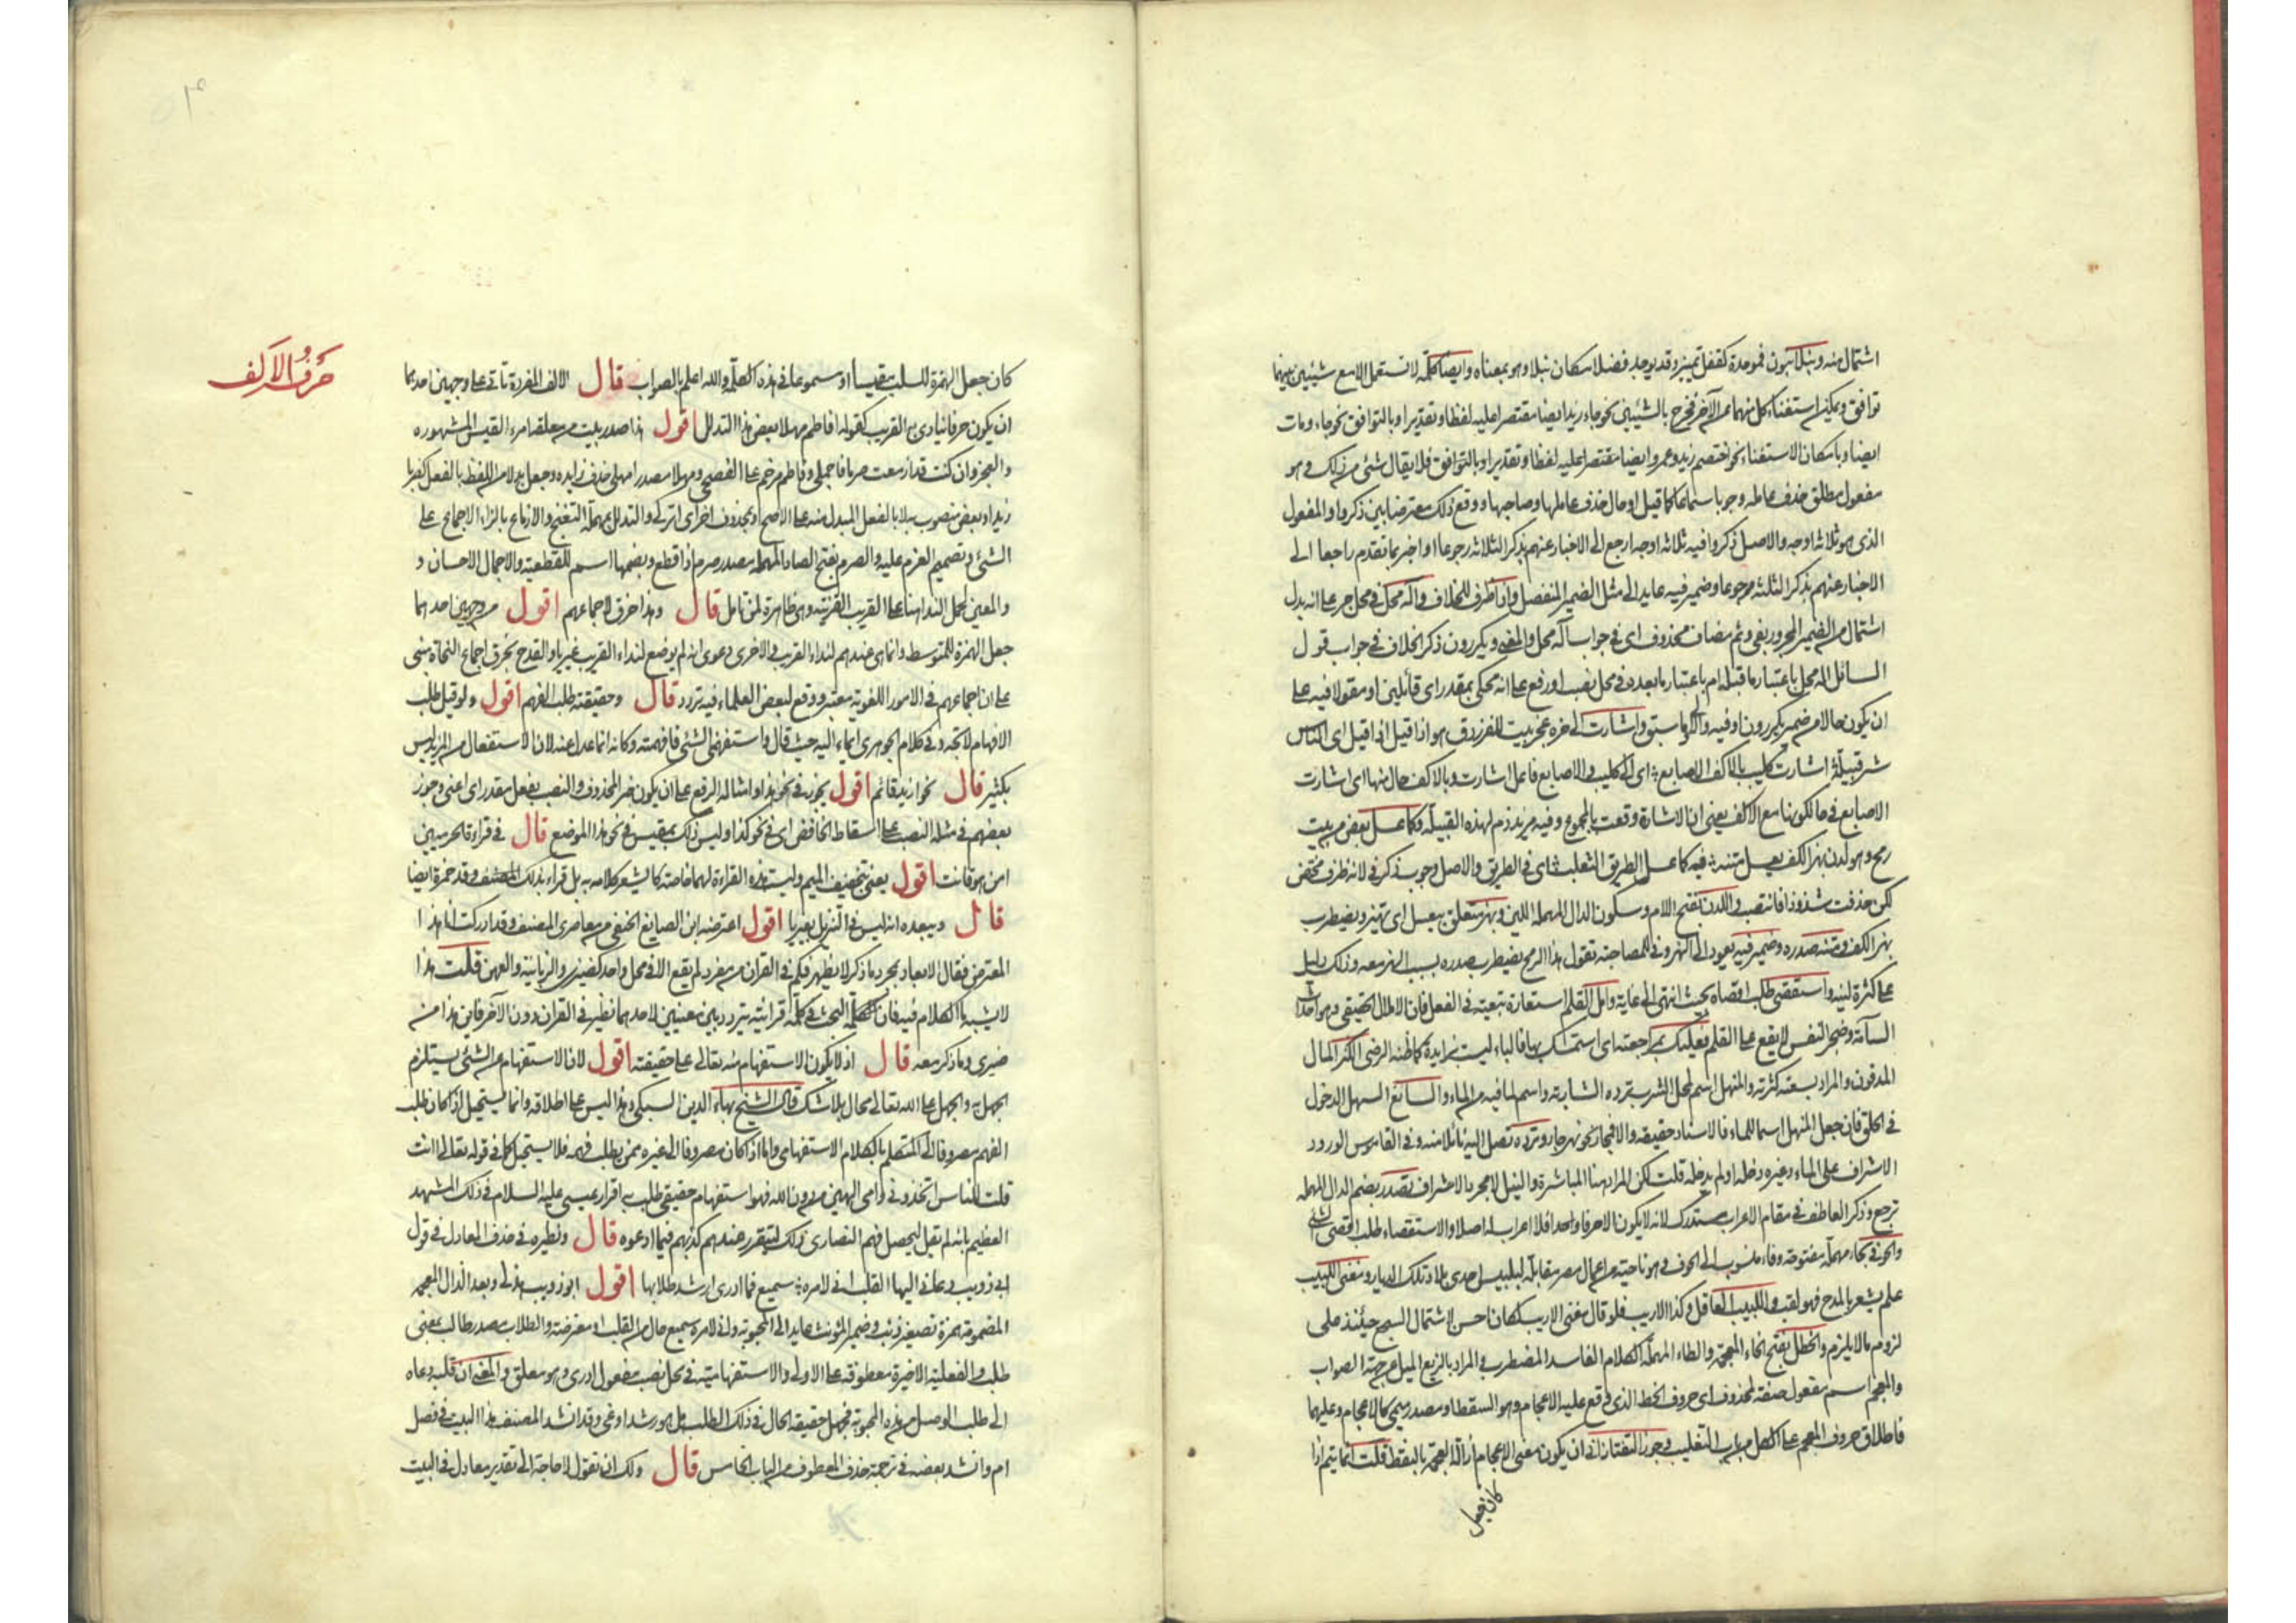 اشتمال منه وبتلا سون فموحدة كقفل تمييز وقد يوجد فضلا مكان بتلا وهو بمعناه وايضا كلمة لا تستعمل الا مع شيئين بينهما
توافق ويمكن استغناء كل منهما عن الآخر فخرج بالشيئين نحو جاء زيد ايضا مقتصرا عليه لفظا وتقديرا وبالتوافق نحو جاء ومات
ايضا وبامكان الاستغناء نحو اختصم زيد وعمرو ايضا مقتصرا عليه لفظا وتقديرا وبالتوافق فلا يقال شئ من ذلك وهو
مفعول مطلق حذف عامله وجوبا سماعا كما قيل او حال حذف عاملها وصاحبها ووقع ذلك معترضا بين ذكروا والمفعول
الذي هو ثلاثة اوجه والاصل ذكروا فيه ثلاثة اوجه ارجع الى الاخبار عنهم بذكر الثلاثة رجوعا او اخبر بما تقدم راجعا الى
الاخبار عنهم بذكر الثلثة مرجوعا وضمير فيه عايد الى مثل الضمير المنفصل واذا ظرف للخلاف واله محل في محل جر على انه بدل
اشتمال من الضمير المجرور بفي وثم مضاف محذوف اي في جواب اله محل والمعنى ويكررون ذكر الخلاف في جواب قول
السائل اله محل باعتبار ما قبله ام باعتبار ما بعده في محل نصب او رفع على انه محكي بمقدر اي قائلين او مقولا فيه على
ان يكون حالا من ضمير يكررون او فيه والى ما سبق واشارت الى خره عجز بيت للفرزدق هو اذا قيل اي الناس
شر قبيلة اشارت كليب بالاكف الاصابع اي الى كليب والاصابع فاعل اشارت وبالاكف حال منها اي اشارت
الاصابع في حال كونها مع الاكف يعني ان الاشارة وقعت بالمجموع وفيه مزيد ذم لهذه القبيلة وكما عسل بعض من بيت
رمح وهو لدن بهز الكف يعسل متنه فيه كما عسل الطريق الثعلب اي في الطريق والاصل وجوب ذكر في لانه ظرف مختص
لكن حذفت شذوذا فانتصب واللدن بفتح اللام وسكون الدال المهملة اللين وبهز متعلق بيعسل اي يهتز ويضطرب
بهز الكف ومتنه صدره وضمير فيه يعود الى الهز وفي للمصاحبة تقول هذا الرمح يضطرب صدره بسبب الهز معه وذلك دليل
على كثرة لينه واستقصى طلب اقصاه بحيث انتهى الى غاية وامل القلم استعارة تبعية في الفعل فان الاملال الحقيقي وهو احداث
السآمة وضجر النفس لا يقع على القلم فعليك بمراجعته اي استمسك بها فالباء ليست بزايدة كما ظنه الرضي الكنز المال
المدفون والمراد بسعته كثرته والمنهل اسم لمحل الشرب ترده الشاربة واسم لما فيه من الماء والسائغ السهل الدخول
في الحلق فان جعل المنهل اسما للماء فالاسناد حقيقة والا فمجاز نحو نهر جار وترده تصل اليه نائلا منه وفي القاموس الورود
الاشراف على الماء وغيره دخله او لم يدخله قلت لكن المراد هنا المباشرة والنيل لا مجرد الاشراف تصدر بضم الدال المهملة
ترجع وذكر العاطف في مقام الاعراب مستدرك لانه لا يكون الا حرفا واحدا فلا اعراب له اصلا والاستقصاء طلب اقصى الشئ
والحوفي بحاء مهملة مفتوحة وفاء منسوب الى الحوف وهو ناحية من اعمال مصر مقابلة لبلبيس احدى بلاد تلك الديار ومغني اللبيب
علم يشعر بالمدح فهو لقب واللبيب العاقل وكذا الاريب فلو قال مغني الاريب لكان احسن لاشتمال السجع حينئذ على
لزوم ما لا يلزم والخطل بفتح الخاء المعجمة والطاء المهملة الكلام الفاسد المضطرب والمراد بالزيغ الميل عن جهة الصواب
والمعجم اسم مفعول صفة لمحذوف اي حروف الخط الذي وقع عليه الاعجام وهو النقط او مصدر ميمي كالاعجام وعليهما
فاطلاق حروف المعجم على الكل من باب التغليب وجوز التفتازاني ان يكون معنى الاعجام ازالة العجمة بالنقط قلت انما يتم اذا
كان جعل
حرف الالف
كان جعل الهمزة للسلب مقيسا او مسموعا في هذه الكلمة والله اعلم بالصواب قال الالف المفردة تأتي على وجهين احدهما
ان يكون حرفا ينادى به القريب كقوله افاطم مهلا بعض هذا التدلل اقول هذا صدر بيت من معلقة امرء القيس المشهوره
والعجز وان كنت قد ازمعت صرما فاجملي وفاطم مرخم على الفصحى ومهلا مصدر امهل حذف زايده وجعل بدلا من اللفظ بالفعل كضربا
زيدا وبعض منصوب بمهلا او بالفعل المبدل منه على الاصح او بمحذوف اخر اي اتركي والتدلل بمهملة التغنج والازماع بالزاء الاجماع على
الشئ وتصميم العزم عليه والصرم بفتح الصاد المهملة مصدر صرم اذا قطع وبضمها اسم للقطيعة والاجمال الاحسان و
والمعين لمحل النداء هنا على القريب القرينة وهي ظاهرة لمن تامل قال وهذا خرق لاجماعهم اقول من وجهين احدهما
جعل الهمزة للمتوسط وانما هي عندهم لنداء القريب والاخرى دعوى انه لم يوضع لنداء القريب غير يا والقدح بخرق اجماع النحاة مبني
على ان اجماعهم في الامور اللغوية معتبر ووقع لبعض العلماء فيه تردد قال وحقيقته طلب الفهم اقول ولو قيل طلب
الافهام لاتجه وفي كلام الجوهري ايماء اليه حيث قال واستفهمني الشئ فافهمته وكانه انما عدل عنه لان الاستفعال من المزيد ليس
بكثير قال نحو ازيد قائم اقول يجوز في نحو هذا وامثاله الرفع على ان يكون خبر المحذوف والنصب بفعل مقدر اي اعني وجوز
بعضهم في مثله النصب على اسقاط الخافض اي في نحو كذا وليس ذلك بمقيس في نحو هذا الموضع قال في قراءة الحرميين
امن هو قانت اقول يعني بتخفيف الميم وليست هذه القراءة لهما خاصة كما يشعر كلامه به بل قراء بذلك المصنف وقد حمزة ايضا
قال ويبعده انه ليس في التنزيل بغير يا اقول اعترضه ابن الصايغ الحنفي من معاصري المصنف وقد ادركت انا هذا
المعترض فقال الابعاد بمجرد ما ذكر لا يظهر فكم في القران من مفرد لم يقع الا في محل واحد كضيزى والزبانية والعهن قلت هذا
لا يشبه الكلام فيه فان الكلمة المبحث في كلمة قرانية يتردد بين معنيين لاحدهما نظير في القران دون الآخر فاين هذا من
ضيزى وما ذكر معه قال اذ لا يكون الاستفهام منه تعالى على حقيقته اقول لان الاستفهام عن الشئ يستلزم
الجهل به والجهل على الله تعالى محال بلا شك قال الشيخ بهاء الدين السبكي وهذا ليس على اطلاقه وانما يستحيل اذا كان طلب
الفهم مصروفا الى المتكلم بالكلام الاستفهامي واما اذا كان مصروفا الى غيره ممن يطلب فهمه فلا يستحيل كما في قوله تعالى اانت
قلت للناس اتخذوني وامي الهين من دون الله فهو استفهام حقيقي طلب به اقرار عيسى عليه السلام في ذلك المشهد
العظيم بانه لم يقل ليحصل فهم النصارى ذلك ليتقرر عندهم كذبهم فيما ادعوه قال ونظيره في حذف المعادل في قول
ابي ذويب دعاني اليها القلب اني لامره سميع فما ادري ارشد طلابها اقول ابو ذويب هذلي وبعد الذال المعجمة
المضمومة همزة تصغير ذئب وضمير المؤنث عايد الى المحبوبة واني لامره سميع حال من القلب او معترضة والطلاب مصدر طالب بمعنى
طلب والفعلية الاخيرة معطوفة على الاولى والاستفهامية في محل نصب مفعول ادري وهو معلق والمعنى ان قلبه دعاه
الى طلب الوصل من هذه المحبوبة فجهل حقيقة الحال في ذلك الطلب هل هو رشد او غي وقد انشد المصنف هذا البيت في فصل
ام وانشد بعضه في ترجمة حذف المعطوف من الباب الخامس قال ولك ان تقول لا حاجة الى تقدير معادل في البيت